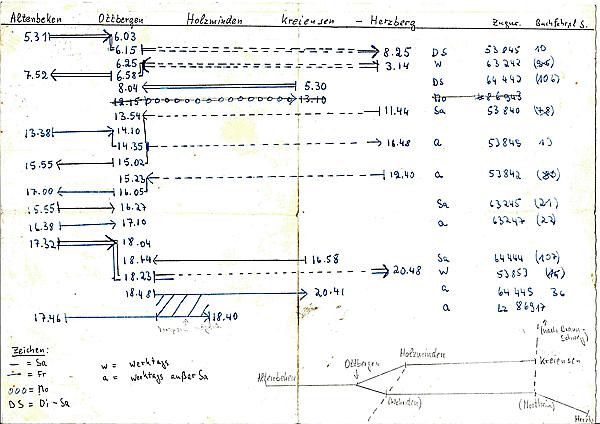 Altenbeken Ottbergen Holzminden Kreiensen – Herzberg Zugnr. Buchfahrpl S.
5.31 6.03
6.15 8.25 DS 53845 10
6.25 3.14 W 63242
7.52 6.58
8.04 5.30 DS 64442 (106)
12.15 13.10 No 86943
13.54 11.44 Sa 53840 (78)
13.38 14.10
14.35 16.48 a 53845 13
15.55 15.02
15.23 12.40 a 53842
17.00 16.05
15.55 16.27 Sa 63245 (21)
16.38 17.10 a 63247 (22)
17.32 18.04
18.14 16.58 Sa 64444 (107)
18.23 20.48 W 53853
18.48 20.41 a 64445 36
17.46 18.40 a Lz 86917
Zeichen:
— = Sa
= Fr
ooo = No
DS = Di – Sa
W = Werktags
a = Werktags außer Sa
Altenbeken
Ottbergen
Holzminden
(nach Braunschweig)
Kreiensen
(Wehrden)
(Northeim)